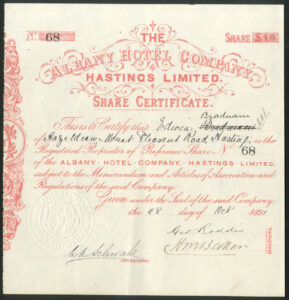 No. 68 SHARE £10
THE
ALBANY HOTEL COMPANY
HASTINGS LIMITED.
SHARE CERTIFICATE.
Bradnam
This is to Certify that Edwin
of Hazeldean Mount Pleasant Road Hastings is the
Registered Proprietor of Preference Share No. 68
of the ALBANY HOTEL COMPANY, HASTINGS LIMITED,
subject to the Memorandum and Articles of Association and
Regulations of the said Company.
Given under the Seal of the said Company
the 28 day of Oct
Geo
SECRETARY.